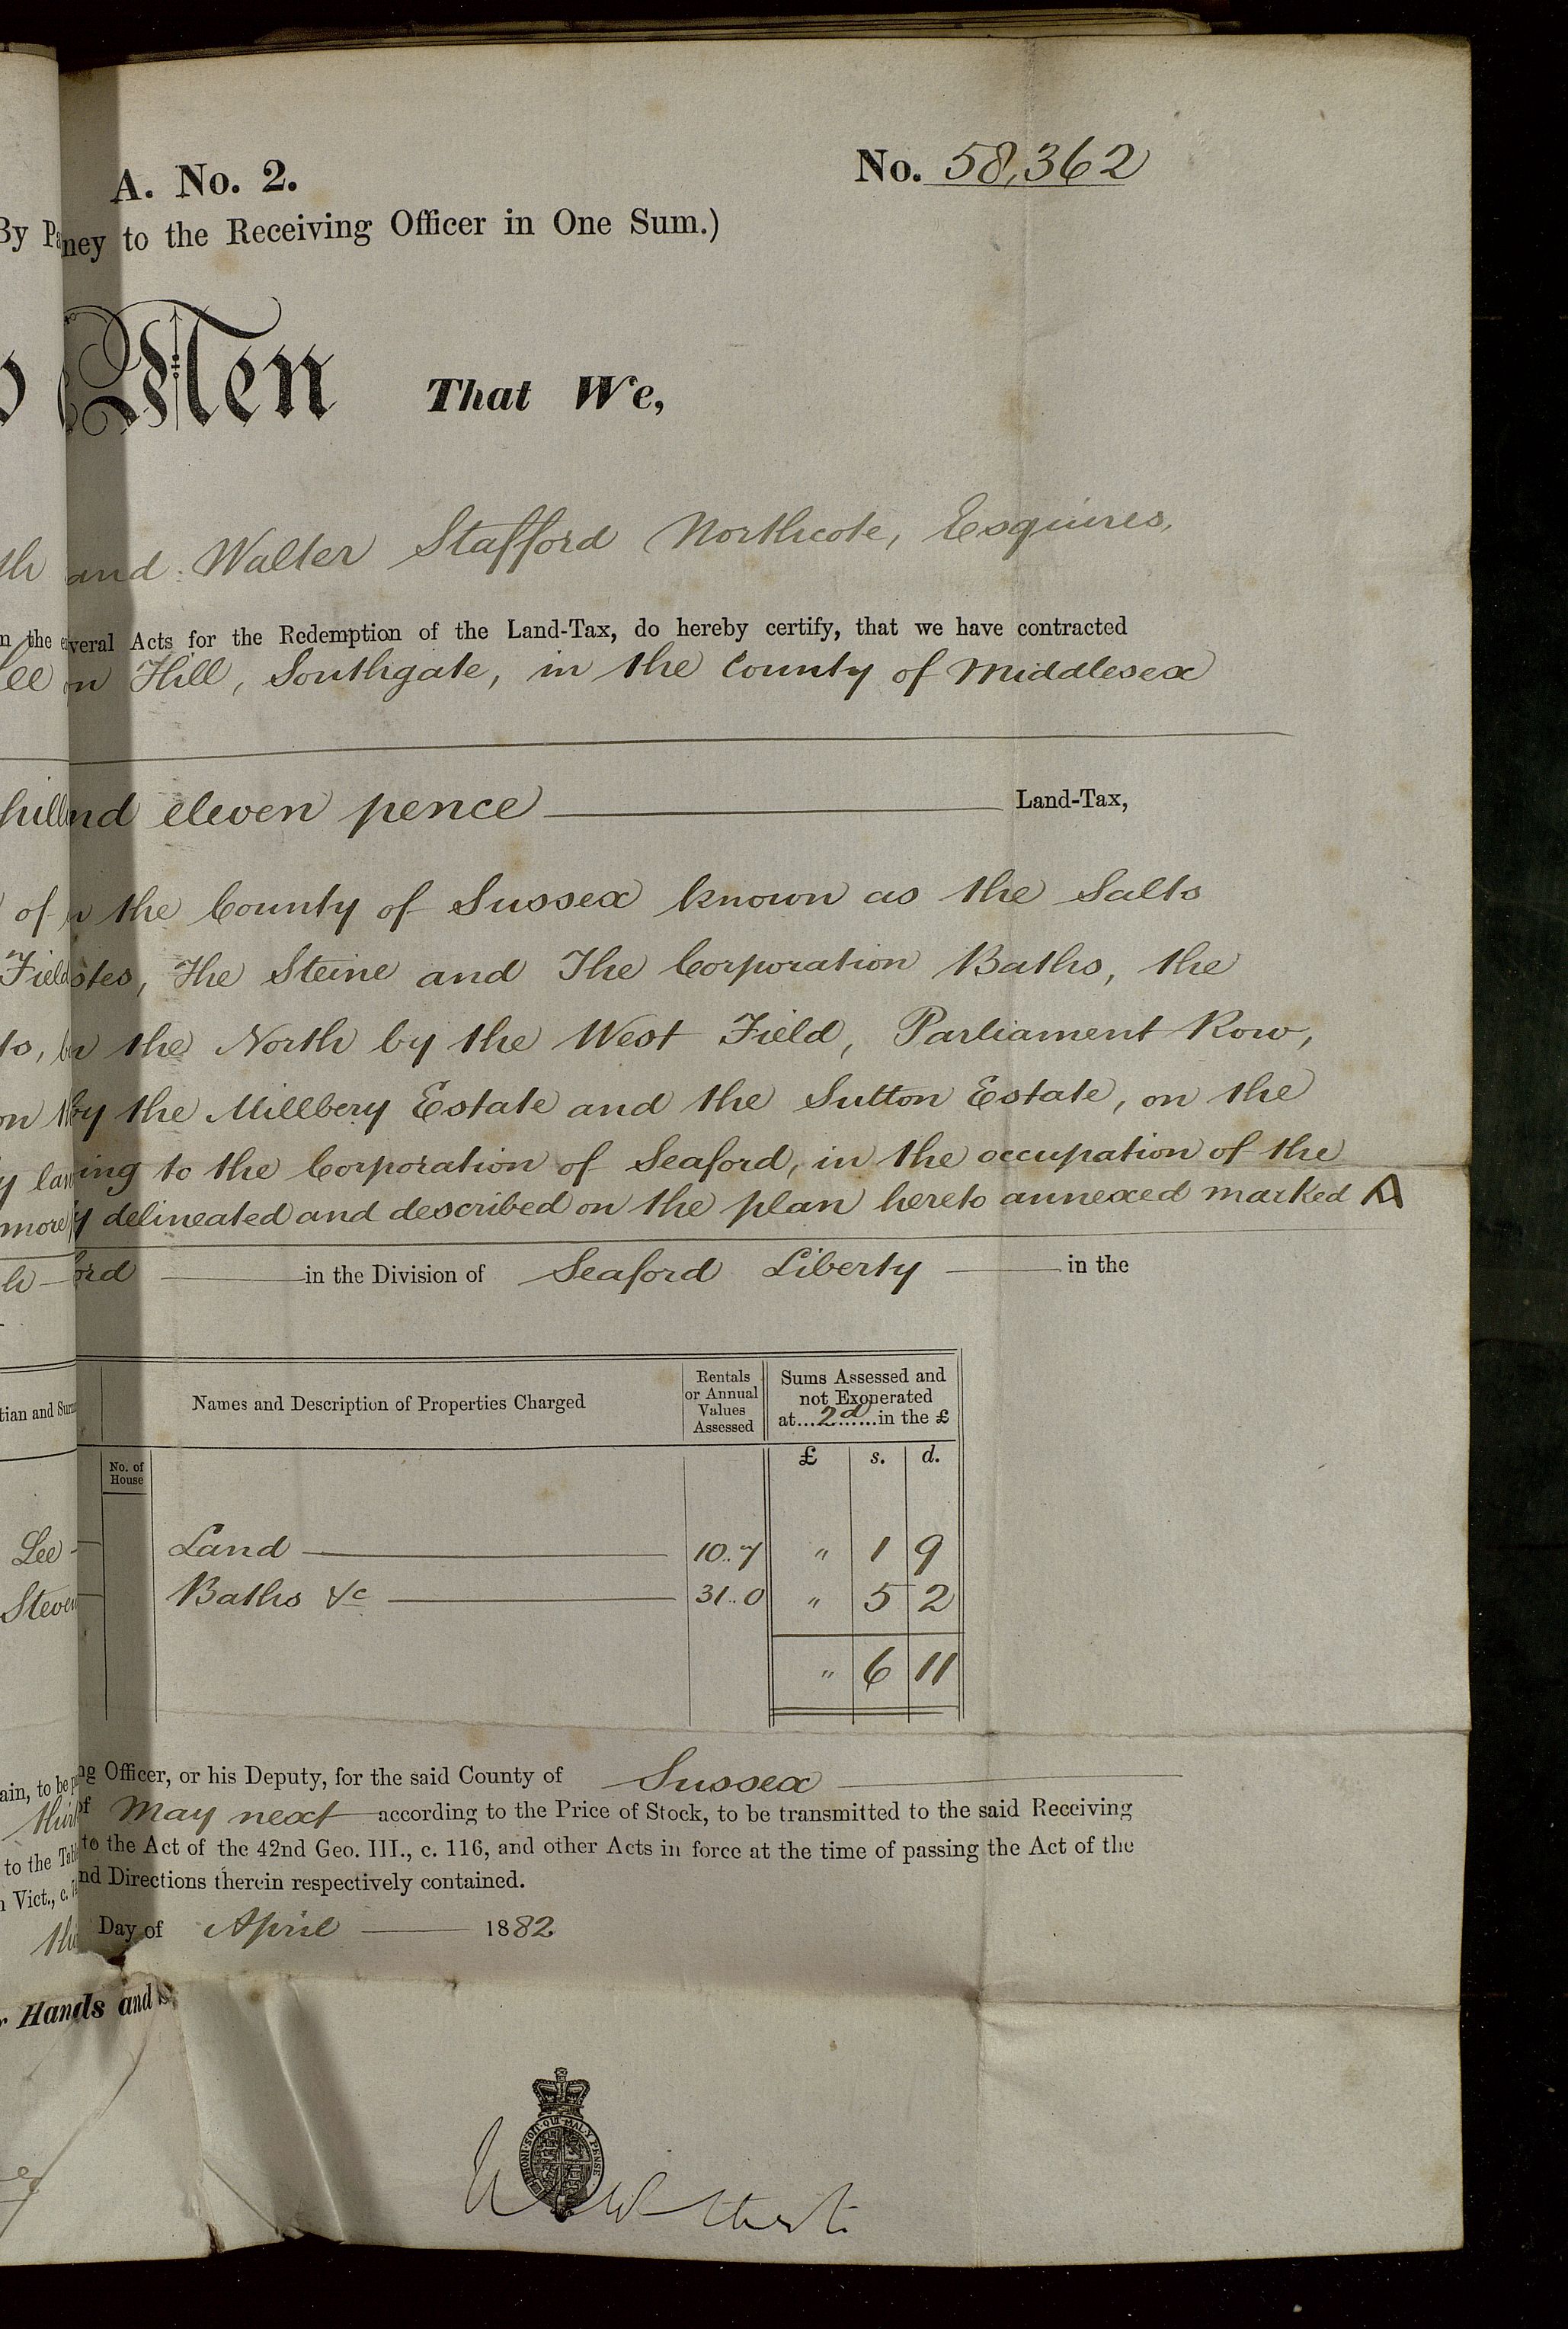 A. No. 2.
No. 58,362
By Pa ney to the Receiving Officer in One Sum.)
Men That We,
th and Walter Stafford Northcote, Esquires,
n the everal Acts for the Redemption of the Land-Tax, do hereby certify, that we have contracted
Lee on Hill, Southgate, in the County of Middlesex
hill nd eleven pence Land-Tax,
of n the County of Sussex known as the Salts
Field stes, The Steine and The Corporation Baths, the
ts, n the North by the West Field, Parliament Row,
on th by the Millbery Estate and the Sutton Estate, on the
y lan ing to the Corporation of Seaford, in the occupation of the
more y delineated and described on the plan hereto annexed marked A
h ord in the Division of Seaford Liberty in the
tian and Surn Names and Description of Properties Charged
Rentals or Annual Values Assessed
Sums Assessed and not Exonerated at...2d......in the £
No. of House
£ s. d.
Lee Land 10..7 " 1 9
Steven Baths &c 31..0 " 5 2
" 6 11
ain, to be p ng Officer, or his Deputy, for the said County of Sussex
thir of May next according to the Price of Stock, to be transmitted to the said Receiving
to the Tab to the Act of the 42nd Geo. III., c. 116, and other Acts in force at the time of passing the Act of the
n Vict., c. nd Directions therein respectively contained.
thi Day of April 1882
r Hands and S
HONI·SOIT·QUI·MAL·Y·PENSE